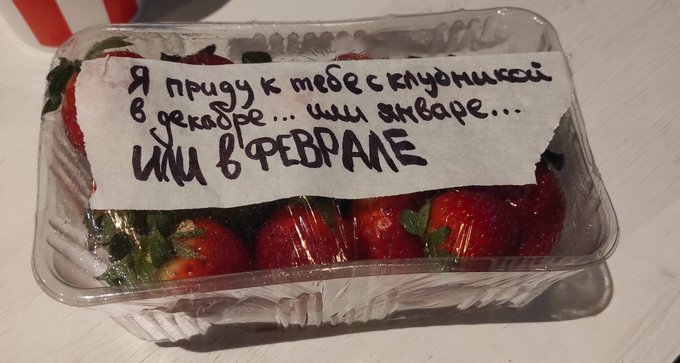 Я приду к тебе с клубникой
в декабре... или январе...
ИЛИ в ФЕВРАЛЕ